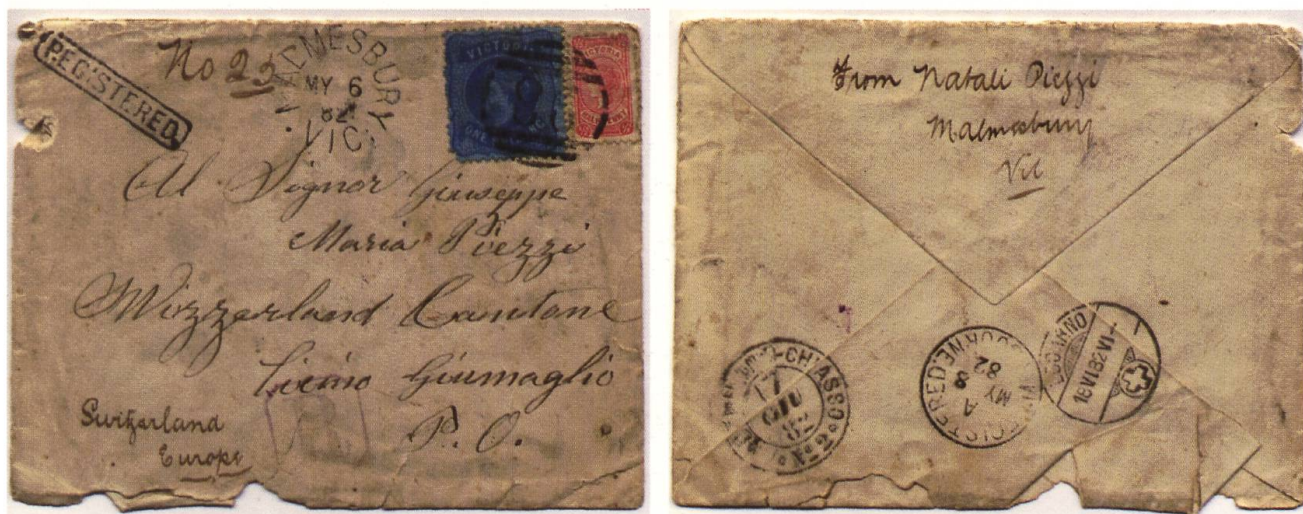 REGISTERED
No 23
MALMESBURY
MY 6
82
VIC.
VICTORIA
Al Signor Giuseppe
Maria Piezzi
Swizzerland Cantone
Ticino Giumaglio
P. O.
Switzerland
Europe
R
From Natali Piezzi
Malmesbury
Vic
CHIASSO
17
GIU
82
No 2
REGISTERED
A
MY 8
82
LOCARNO
18 VI 82 VI